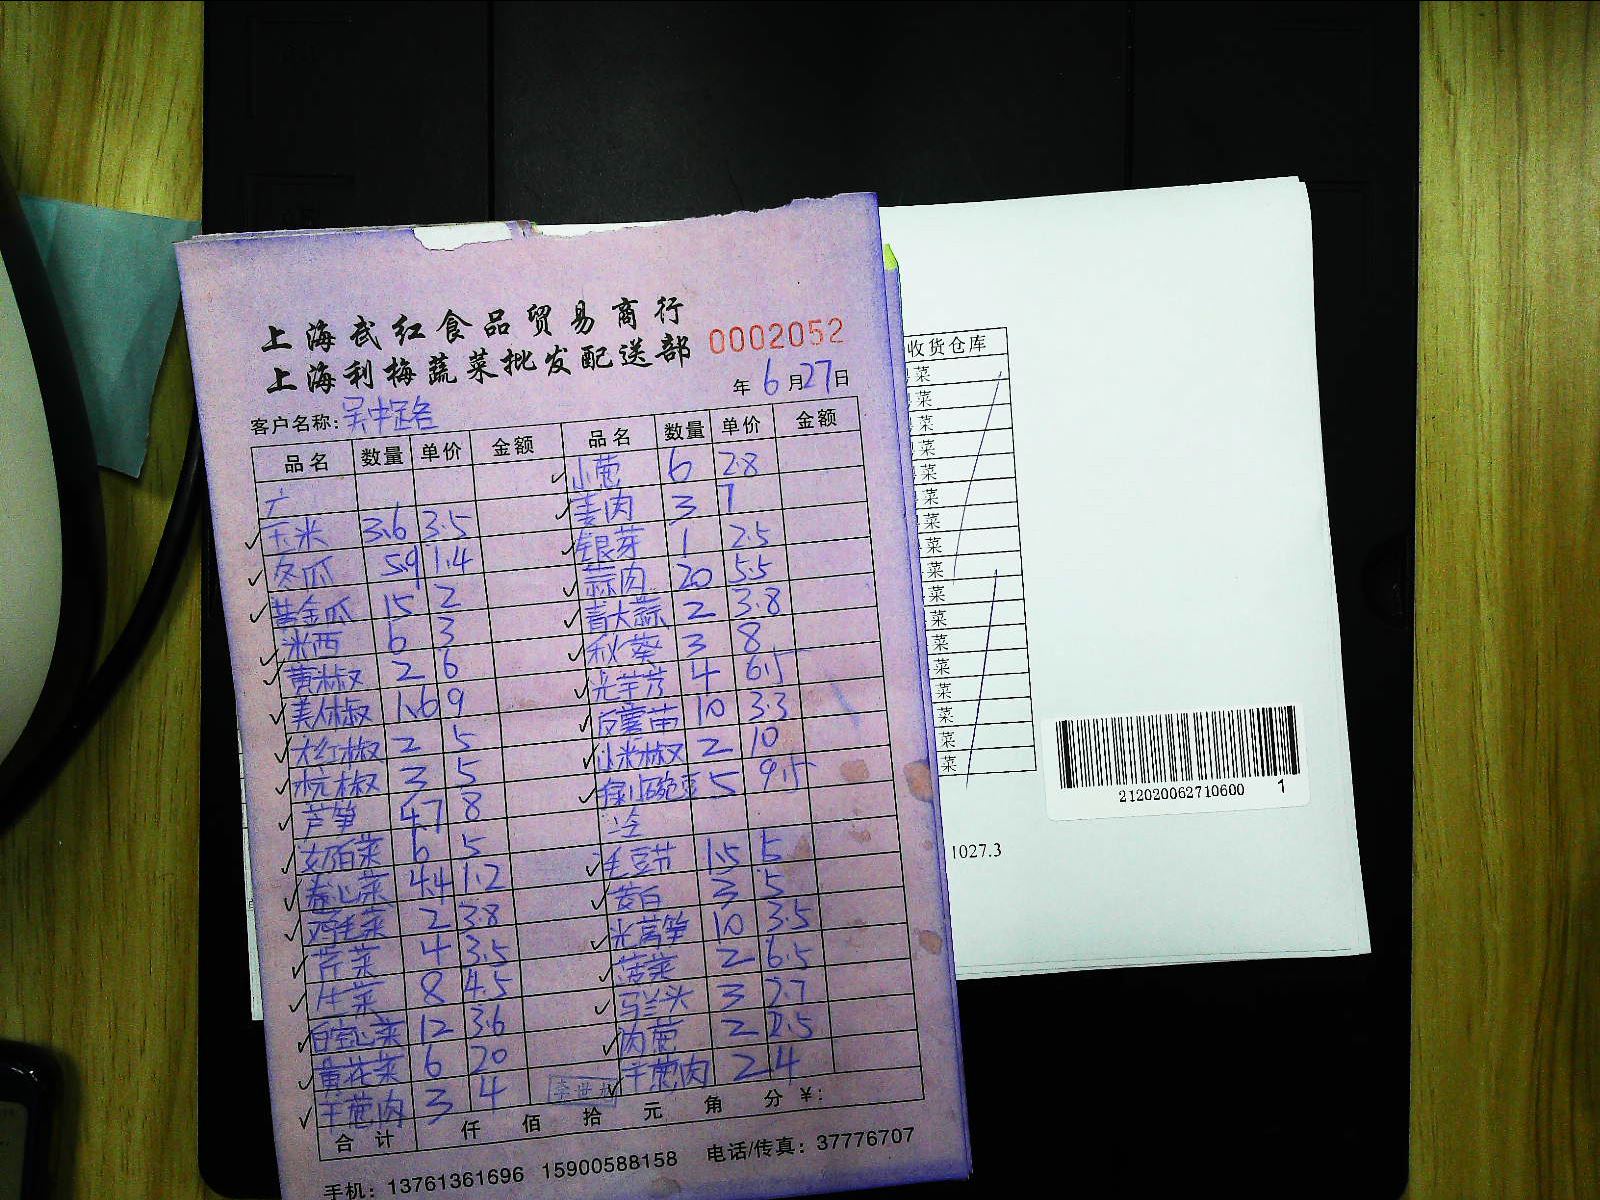 上海武红食品贸易商行
上海利梅蔬菜批发配送部
0002052
年 6月27日
客户名称:
品名 数量 单价 金额 品名 数量 单价 金额
广 小葱 6 2.8
玉米 3.6 3.5 姜肉 3 7
冬瓜 5.9 1.4 银芽 1 2.5
黄金瓜 15 2 蒜肉 20 5.5
米西 6 3 青大蒜 2 3.8
黄椒 2 6 秋葵 3 8
美人椒 1.6 9 光芋艿 4 6.5
大红椒 2 5 10 3.3
杭椒 3 5 小米椒 2 10
芦笋 4.7 8 5 9.5
奶白菜 6 5
卷心菜 4.4 1.2 毛豆节 1.5 5
鸡毛菜 2 3.8 茭白 3 5
芹菜 4 3.5 光莴笋 10 3.5
生菜 8 4.5 菠菜 2 6.5
白空心菜 12 3.6 马兰头 3 2.7
黄花菜 6 20 肉葱 2 2.5
干葱肉 3 4 干葱肉 2 4
合计 仟 佰 拾 元 角 分 ¥:
手机: 13761361696 15900588158 电话/传真: 37776707
收货仓库
菜
菜
菜
菜
菜
菜
菜
菜
菜
菜
菜
菜
菜
菜
菜
菜
菜
212020062710600 1
1027.3